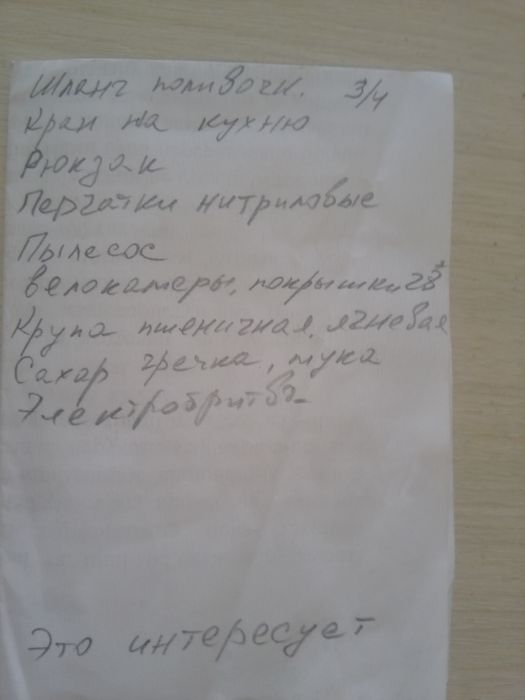 Шланг поливочн. 3/4
Кран на кухню
Рюкзак
Перчатки нитриловые
Пылесос
велокамеры, покрышки 28
Крупа пшеничная, ячневая
Сахар гречка, мука
Электробритва
Это интересует